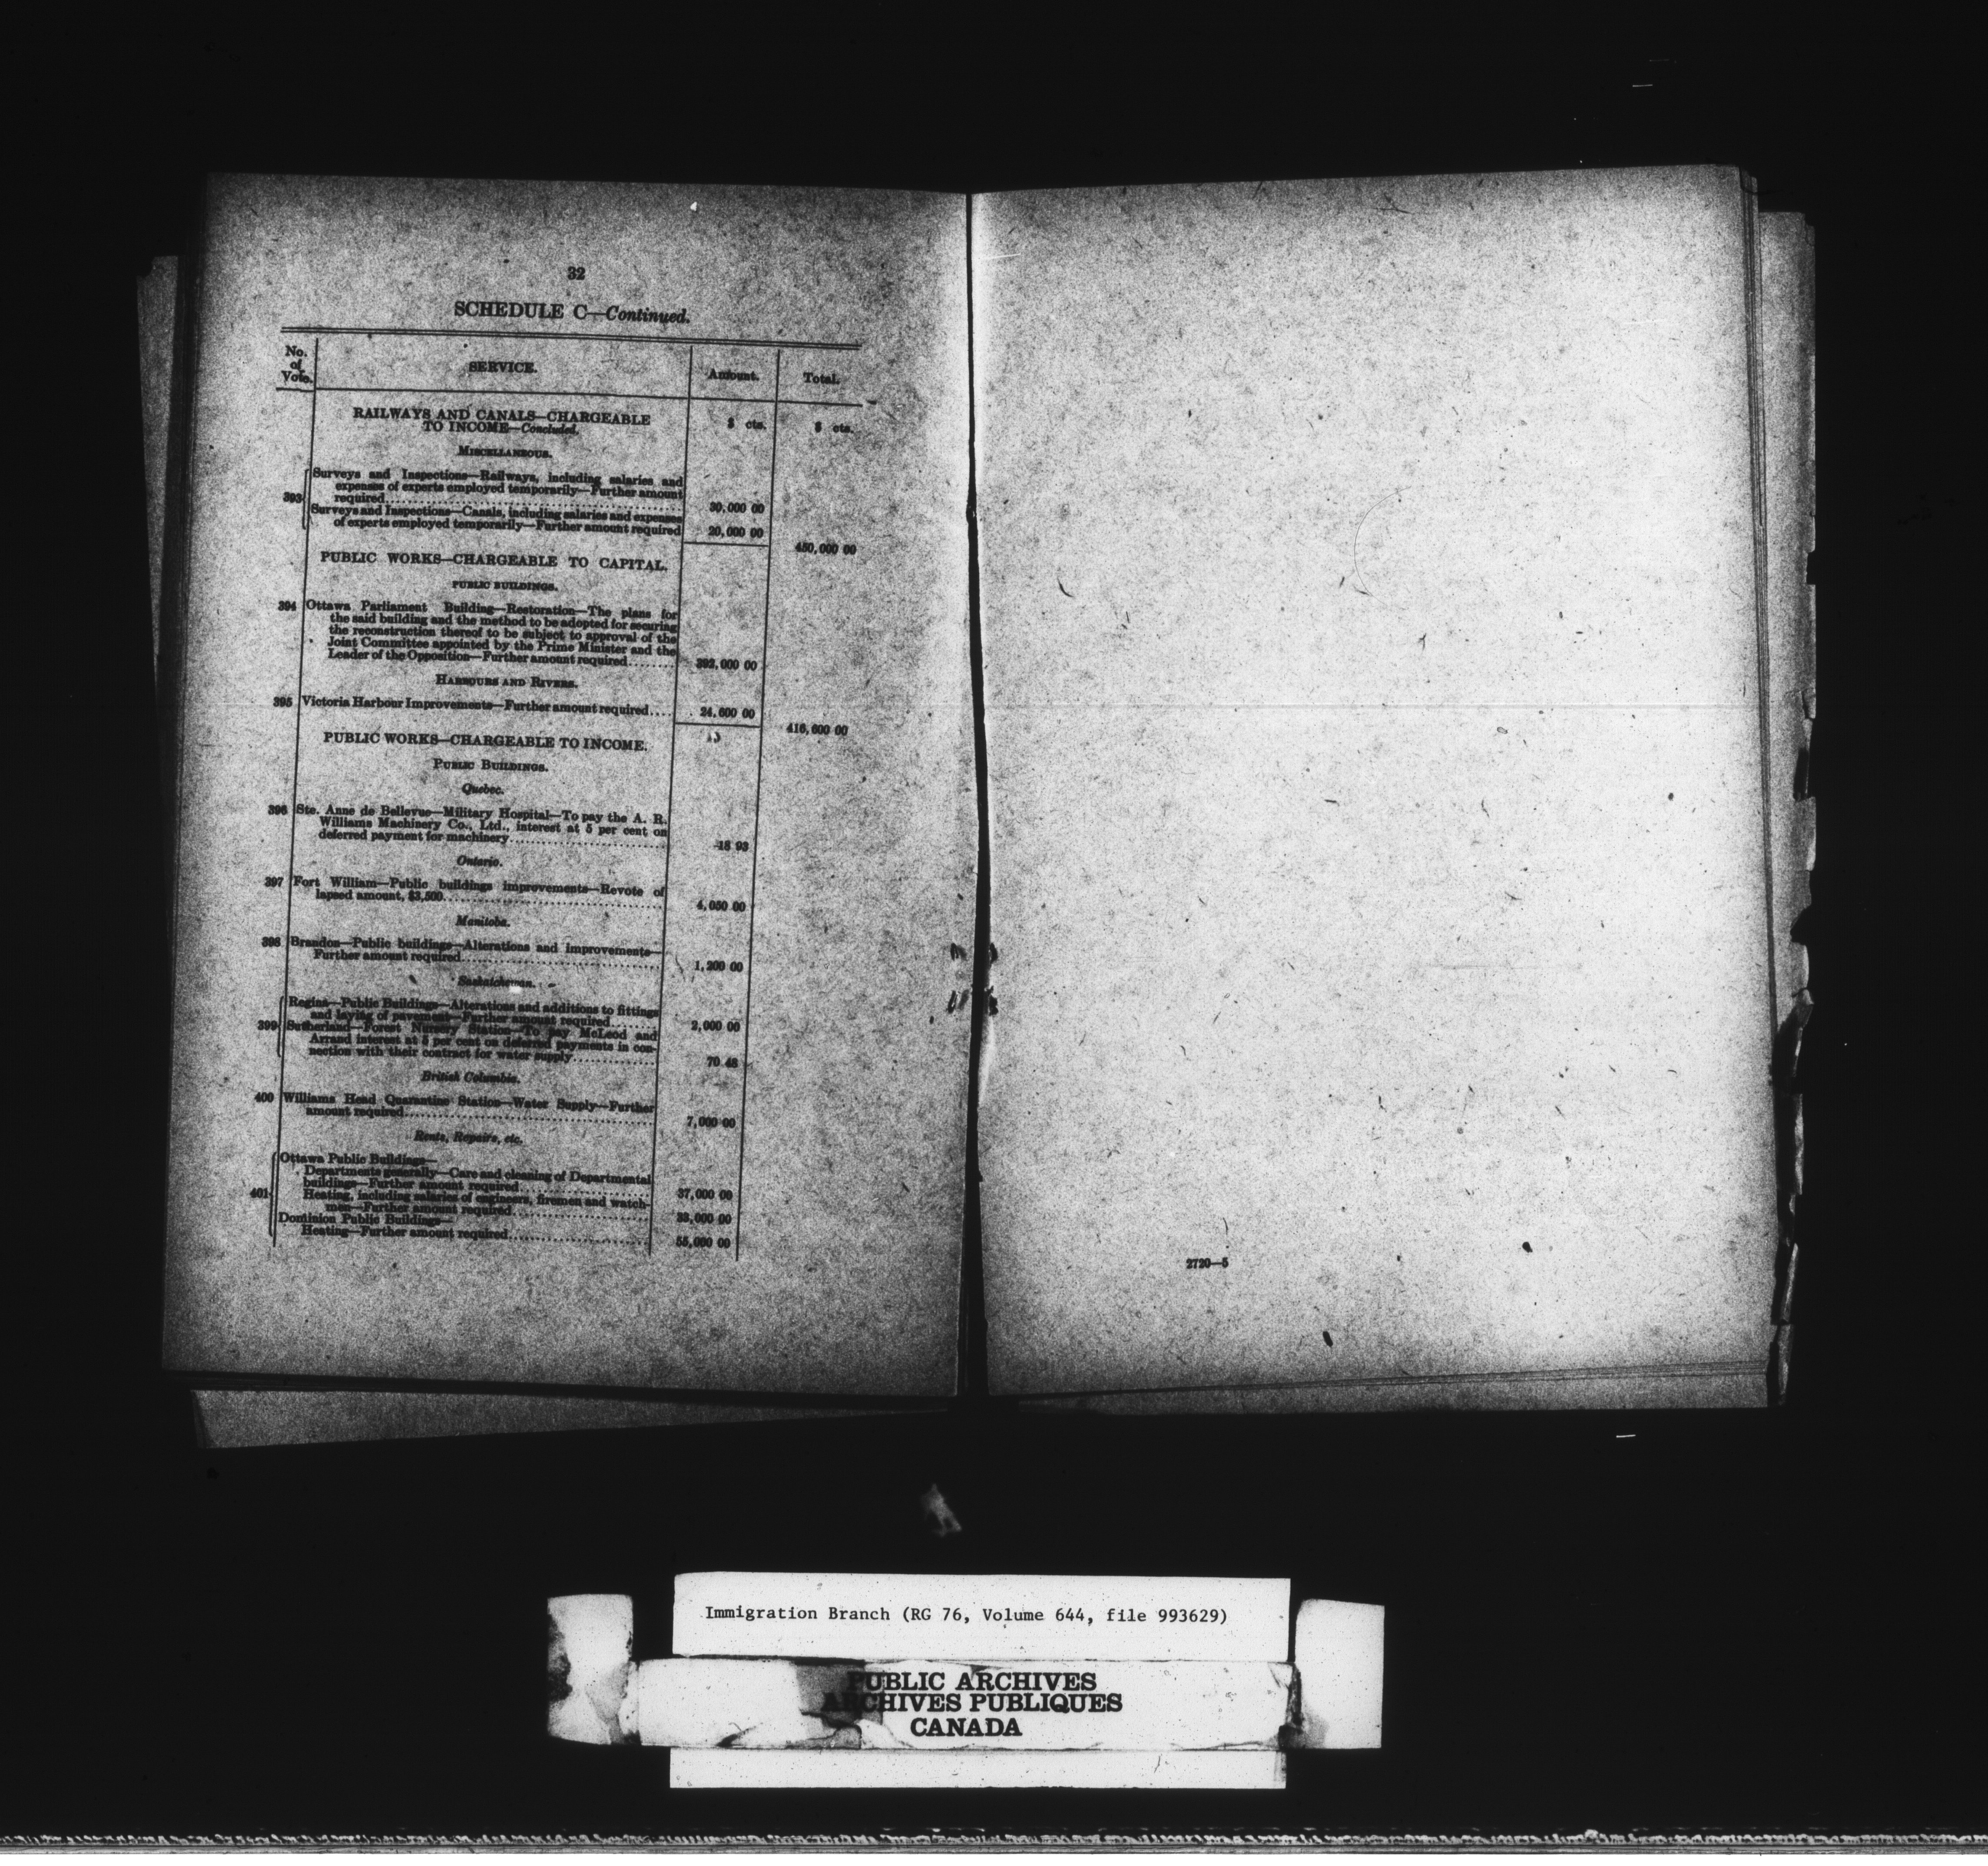 32
SCHEDULE C—Continued.
No. of Vote.
SERVICE.
Amount.
Total.
RAILWAYS AND CANALS—CHARGEABLE
TO INCOME—Concluded.
$ cts.
$ cts.
MISCELLANEOUS.
393
Surveys and Inspections—Railways, including salaries and
expenses of experts employed temporarily—Further amount
required........ 30,000 00
Surveys and Inspections—Canals, including salaries and expenses
of experts employed temporarily—Further amount required 20,000 00
450,000 00
PUBLIC WORKS—CHARGEABLE TO CAPITAL.
PUBLIC BUILDINGS.
394 Ottawa Parliament Building—Restoration—The plans for
the said building and the method to be adopted for securing
the reconstruction thereof to be subject to approval of the
Joint Committee appointed by the Prime Minister and the
Leader of the Opposition—Further amount required........ 392,000 00
HARBOURS AND RIVERS.
395 Victoria Harbour Improvements—Further amount required.... 24,600 00
416,600 00
PUBLIC WORKS—CHARGEABLE TO INCOME.
PUBLIC BUILDINGS.
Quebec.
396 Ste. Anne de Bellevue—Military Hospital—To pay the A. R.
Williams Machinery Co., Ltd., interest at 5 per cent on
deferred payment for machinery........ 18 93
Ontario.
397 Fort William—Public buildings improvements—Revote of
lapsed amount, $3,500........ 4,050 00
Manitoba.
398 Brandon—Public buildings—Alterations and improvements—
Further amount required........ 1,200 00
Saskatchewan.
399
Regina—Public Buildings—Alterations and additions to fittings
and laying of pavement—Further amount required........ 2,000 00
Sutherland—Forest Nursery Station—To pay McLeod and
Arrand interest at 5 per cent on deferred payments in con-
nection with their contract for water supply........ 70 48
British Columbia.
400 Williams Head Quarantine Station—Water Supply—Further
amount required........ 7,000 00
Rents, Repairs, etc.
401
Ottawa Public Buildings—
Departments generally—Care and cleaning of Departmental
buildings—Further amount required........ 37,000 00
Heating, including salaries of engineers, firemen and watch-
men—Further amount required........ 33,000 00
Dominion Public Buildings—
Heating—Further amount required........ 55,000 00
2720—5
Immigration Branch (RG 76, Volume 644, file 993629)
PUBLIC ARCHIVES
ARCHIVES PUBLIQUES
CANADA